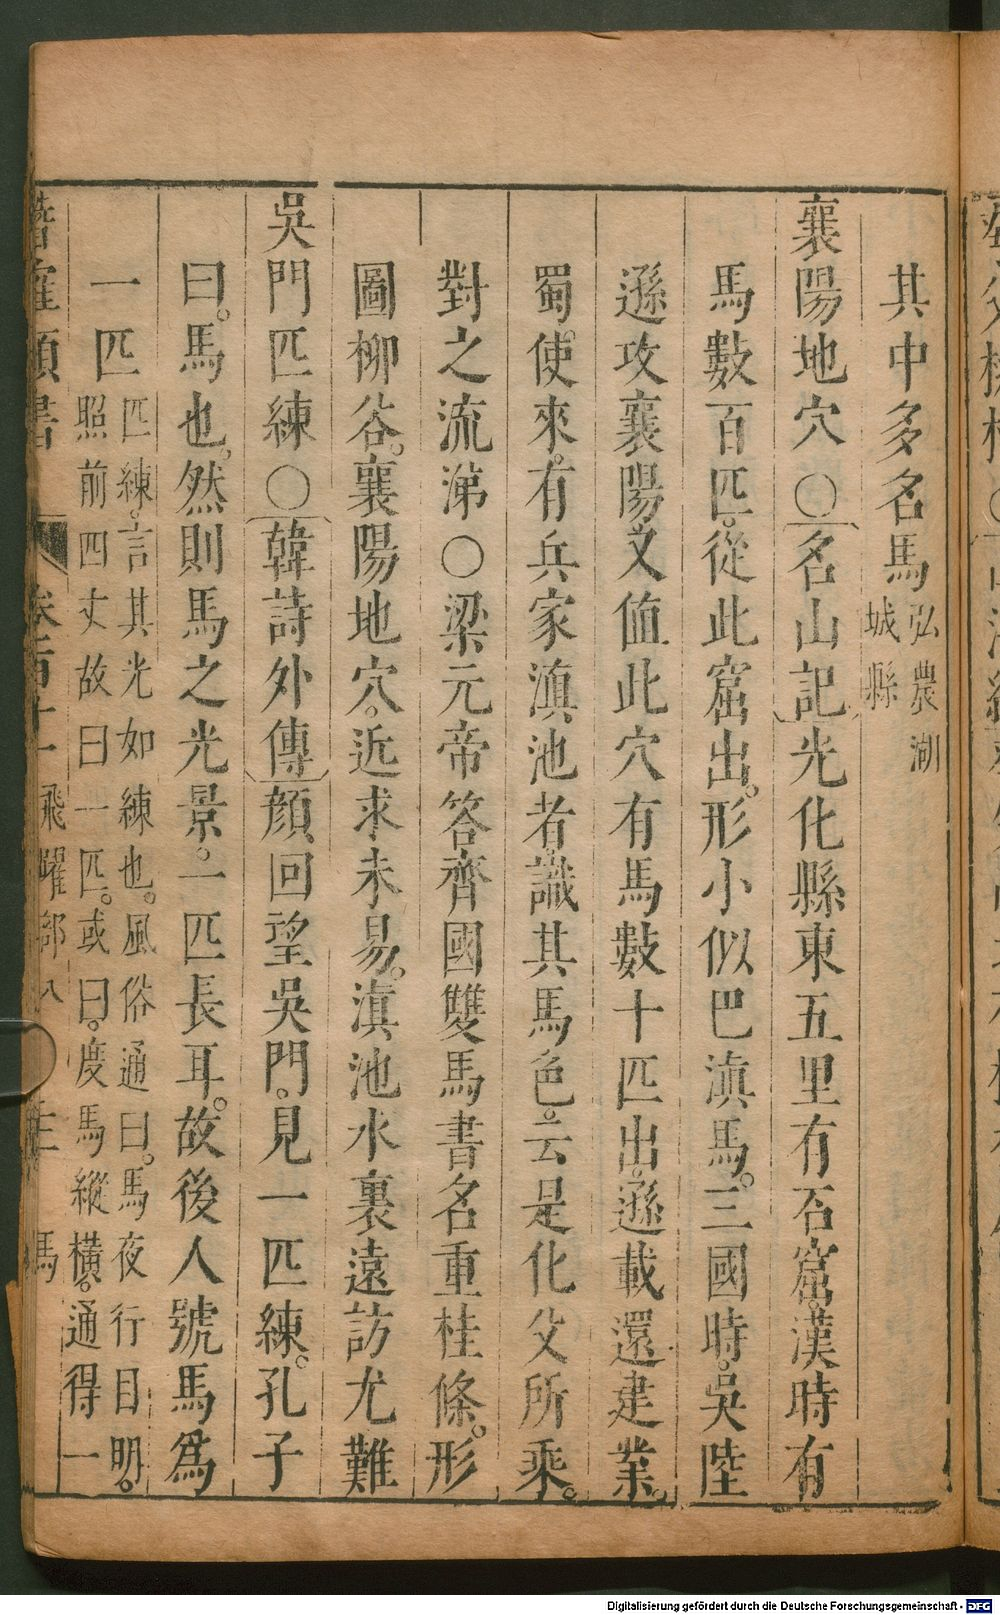 其中多名馬弘農湖城縣
襄陽地穴○名山記光化縣東五里有石窟。漢時有
馬數百匹。從此窟出。形小似巴滇馬。三國時。吳陸
遜攻襄陽又値此穴有馬數十匹出。遜載還建業。
蜀。使來。有兵家滇池者。識其馬色。云是化父所乘。
對之流涕○梁元帝答齊國雙馬書名重桂條。形
圖柳谷。襄陽地穴。近求未易。滇池水裏遠訪尤難
吳門匹練○韓詩外傳顏回望吳門。見一匹練。孔子
曰。馬也。然則馬之光景。一匹長耳。故後人號馬爲
一匹匹練。言其光如練也。風俗通曰。馬夜行目明。
照前四丈故曰一匹。或曰。度馬縱橫。通得一
潛確類書 卷百十一 飛躍部八 馬
Digitalisierung gefördert durch die Deutsche Forschungsgemeinschaft - DFG